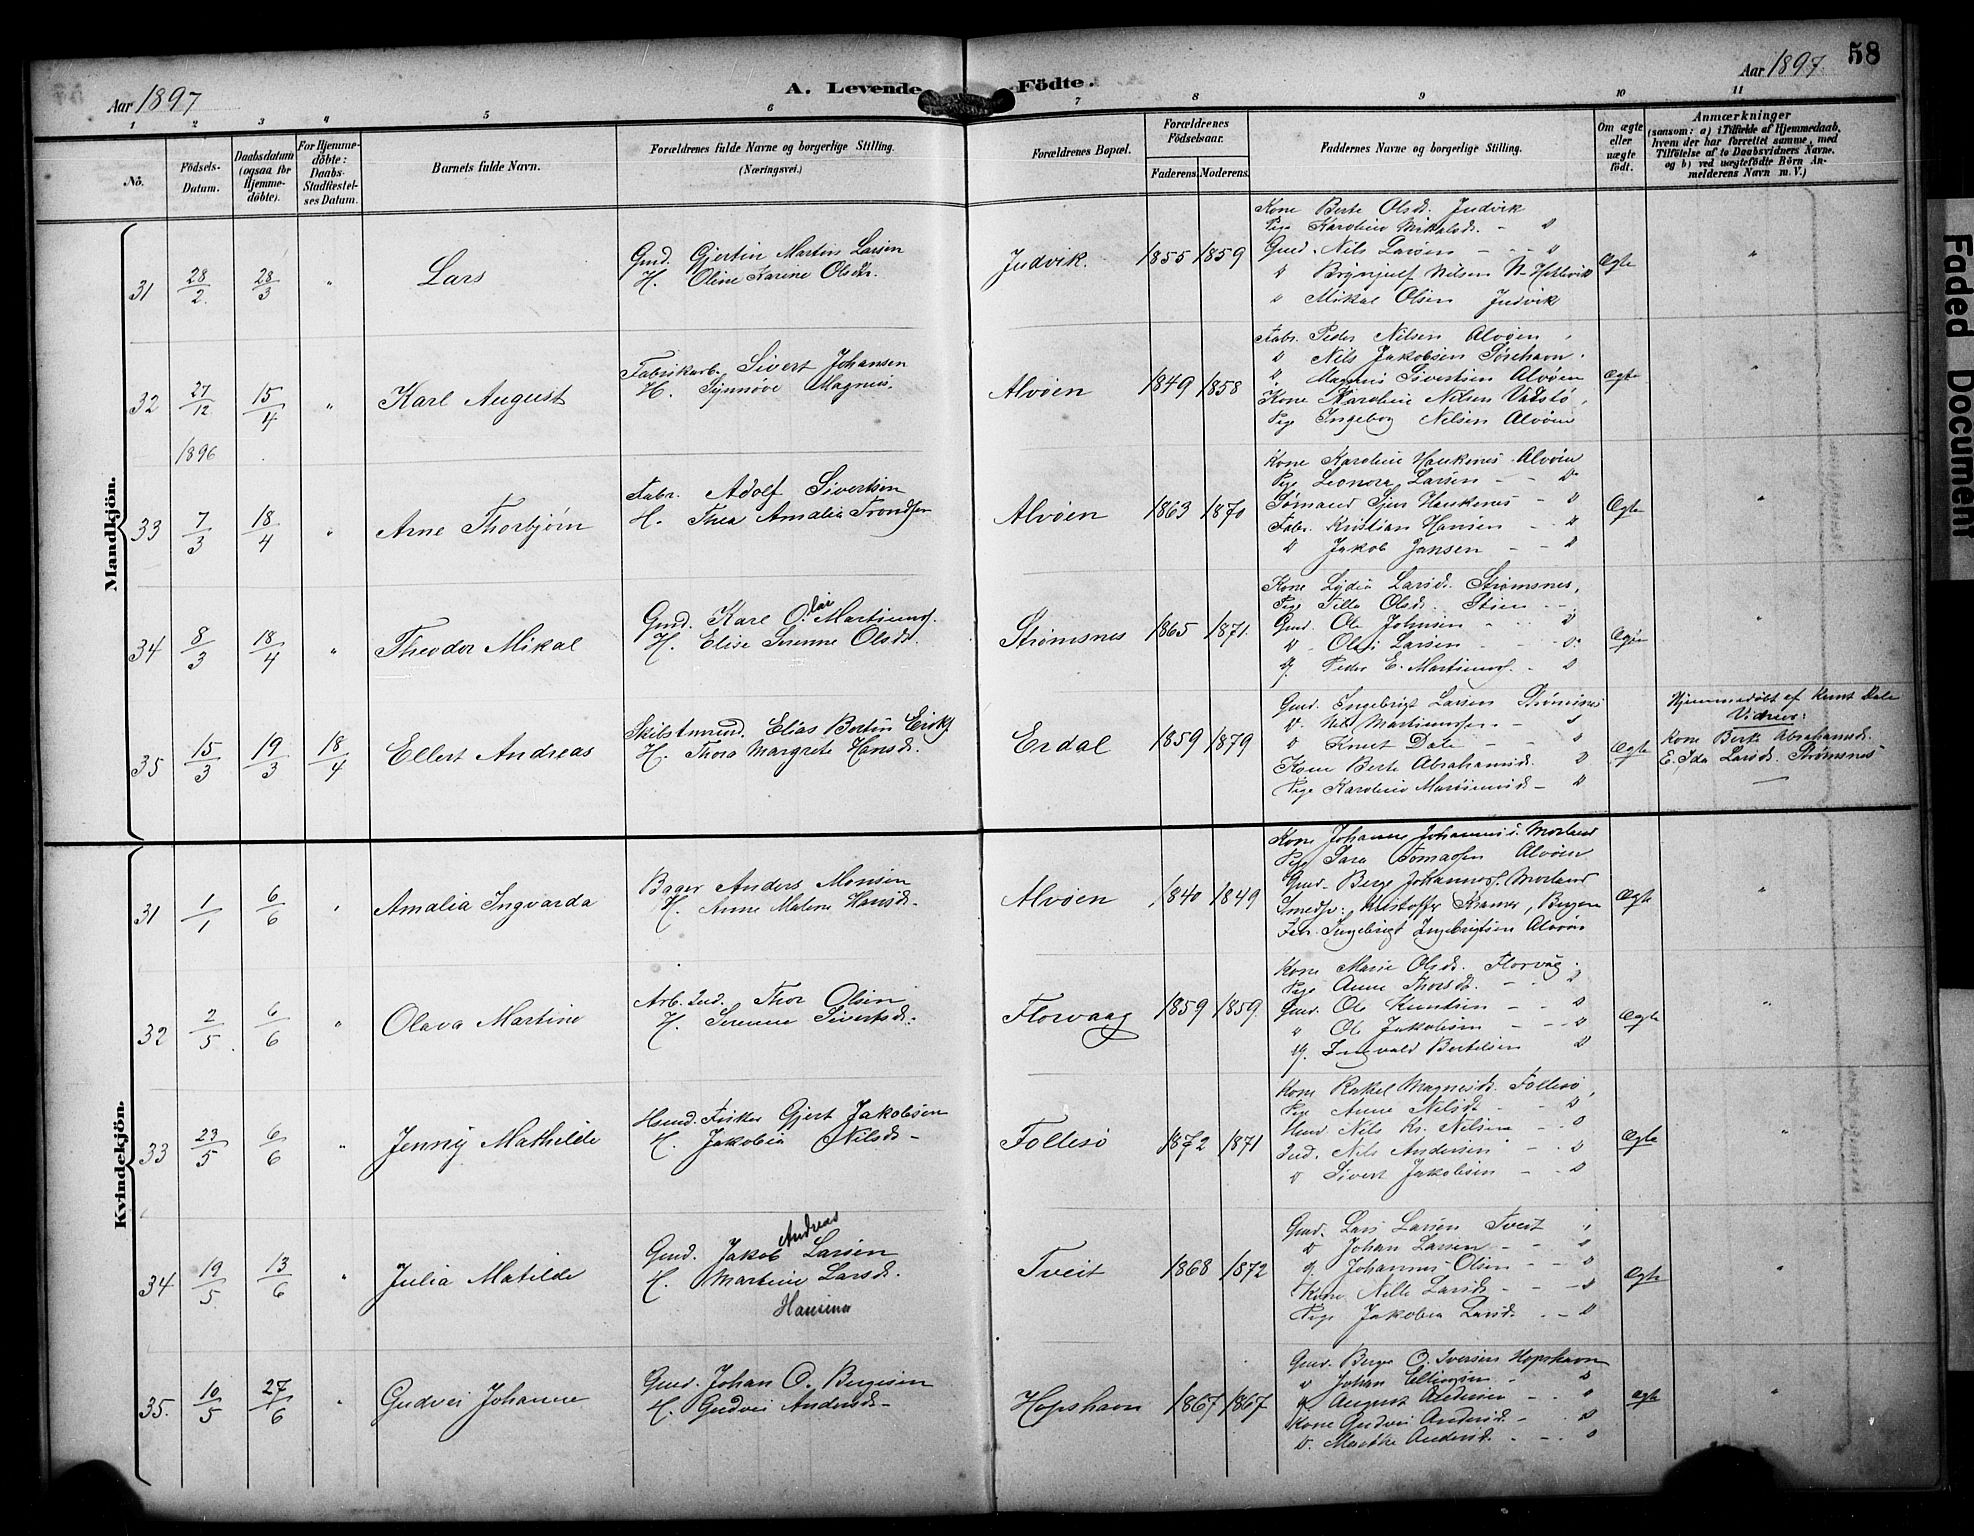 58
Aar 1897
A. Levende Födte.
Aar 1897
1 2 3 4 5 6 7 8 9 10 11
No.
Födsels-Datum.
Daabsdatum (ogsaa for Hjemme-døbte).
For Hjemme-døbte: Daabs-Stadfæstel-ses Datum.
Barnets fulde Navn.
Forældrenes fulde Navne og borgerlige Stilling. (Næringsvei.)
Forældrenes Bopæl.
Forældrenes Födselsaar.
Faderens. Moderens.
Faddernes Navne og borgerlige Stilling.
Om ægte eller uægte födt.
Anmærkninger
(saasom: a) i Tilfælde af Hjemmedaab, hvem der har forrettet samme, med Tilföielse af to Daabsvidners Navne, og b) ved uægtefödte Börn An-melderens Navn m. V.)
Mandkjön.
31 28/2 28/3 " Lars
Gmd. Gjertin Martin Larsen
H. Oline Karine Olsdtr.
Judvik. 1855 1859
Kone Berte Olsd. Judvik
Pige Karoline Mikalsd. - "
Gmd. Nils Larsen - - "
" Brynjulf Nilsen N-
" Mikal Olsen Judvik
Ægte "
32 27/12 1896 15/4 " Karl August
Fabrikarb. Sivert Johansen
H. Synnøve Magnus.
Alvøen 1849 1858
Fabr. Peder Nilsen Alvøen
" Nils Jakobsen
" Magnus Sivertsen Alvøen
Kone Karoline Nilsen
Pige Ingeborg Nilsen Alvøen
Ægte "
33 7/3 18/4 " Arne Thorbjørn
Fabr. Adolf Sivertsen
H. Thea Amalia Trondsen
Alvøen 1863 1870
Kone Karoline Haukenes Alvøen
Pige Leonora Larsen - - "
Sømand Sjur Haukenes - "
Fabr. Kristian Hansen - - "
" Jakob Jansen - - "
Ægte "
34 8/3 18/4 " Theodor Mikal
Gmd. Karl O.lai Martinus.
H. Elise Serenne Olsdt.
Strømsnes 1865 1871.
Kone Lydia Larsd. Strømsnes,
Pige Olsd. - -
Gmd. Ole Johnsen - - "
" Olai Larsen - - "
U. Peder E. Martinus. - "
Ægte "
35 15/3 19/3 18/4 Ellert Andreas
Elias Bertin Eriks.
H. Thora Margrete Hansd.
Erdal 1859 1879
Gmd. Ingebrigt Larsen Strømsnes
" Martinussen - "
" Knut Dale - - "
Kone Berte Abrahamsd. "
Pige Karoline - "
Ægte
Hjemmedøbt af Knut Dale
Vidner:
Kone Berte Abrahamsd.
E. Ida Larsd. Strømsnes
Kvindekjön.
31 1/1 6/6 " Amalia Ingvarda
Bager Anders Monsen
H. Anne Malene Hansd.
Alvøen 1840 1849
Kone Johanne Johannesd. Morland
Pige Sara Tomassen Alvøen
Gmd. Berge Johannes. Morland
Smedsv: Kristoffer Kramer, Bergen
Fabr. Ingebrigt Ingebrigtsen Alvøen
Ægte "
32 2/5 6/6 " Olava Martine
Arb. Ind. Thor Olsen
H. Serenne Sivertsd.
Florvaag 1859 1859.
Kone Marie Olsd. Florvåg.
Pige Anne Thorsd. - - "
Gmd. Ole Knutsen - - "
" Ole Jakobsen - - "
U. Ingvald Bertelsen "
Ægte "
33 23/5 6/6 " Jenny Mathilde
Hmd. Fisker Gjert Jakobsen
H. Jakobia Nilsd.
Follesö 1872 1871
Kone Rakel Magnesd. Follesö,
Pige Anne Nilsdt. - - "
Hmd. Nils Kr. Nilsen - "
Ind. Nils Andersen - - "
" Sivert Jakobsen - - "
Ægte "
34 19/5 13/6 " Julia Matilde
Andreas
Gmd. Jakob Larsen
H. Martine Larsd.
Hansina
Tveit 1868 1872
Gmd. Lars Larsen Tveit "
" Johan Larsen - - "
U. Johannes Olsen - - "
Kone Nille Larsd. - - "
Pige Jakobia Larsd. - - "
Ægte "
35. 10/5 27/6 " Gudvei Johanne
Gmd. Johan O. Bergesen
H. Gudvei Andersd.
Hopshavn 1867 1867
Gmd. Berge O. Iversen Hopshavn
" Johan Ellingsen - "
U. August Andersen - - "
Kone Gudvei Andersd. - - "
" Andersd. - - "
Ægte "
Faded Document